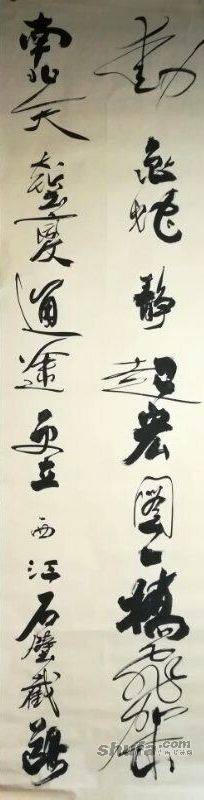 動龜蛇靜起宏圖一橋飛架
南北天塹變通途更立西江石壁截斷